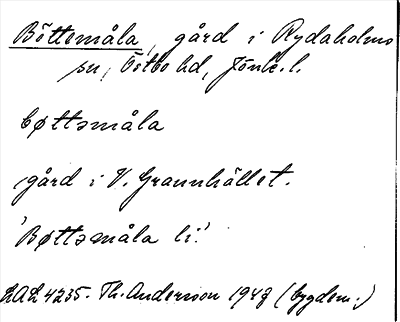 Böttemåla, gård i Rydaholms
sn, Östbo hd, Jönk. l.
bøttəmåla
gård i V. Grannhället.
'Bøttəmåla li.'
LAL 4235. Th. Anderson 1947 (bygdem.)